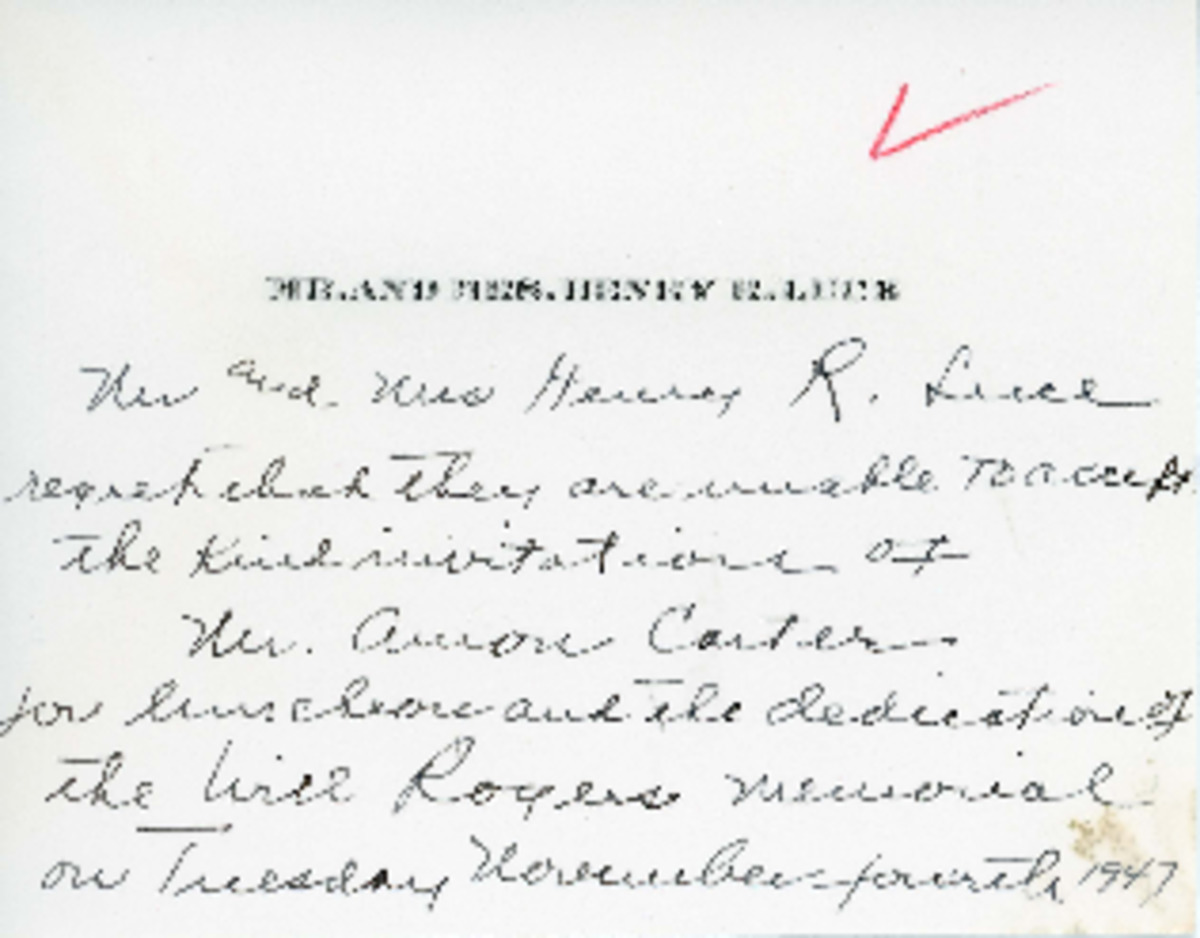 MR. AND MRS. HENRY R. LUCE
Mr and Mrs Henry R. Luce
regret that they are unable to accept
the kind invitation of
Mr. Amon Carter
for luncheon and the dedication of
the Will Rogers memorial
on Tuesday November fourth 1947